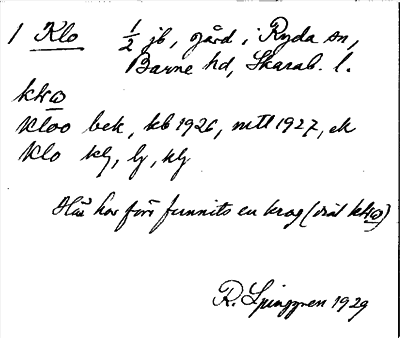 1 Klo ½ jb, gård i Ryda sn,
Barne hd, Skarab. l.
Kloo bek, kb 1926, mtl 1927, ek
Klo kg, lg, kg
Här har förr funnits en krog (dial
R. Ljunggren 1929